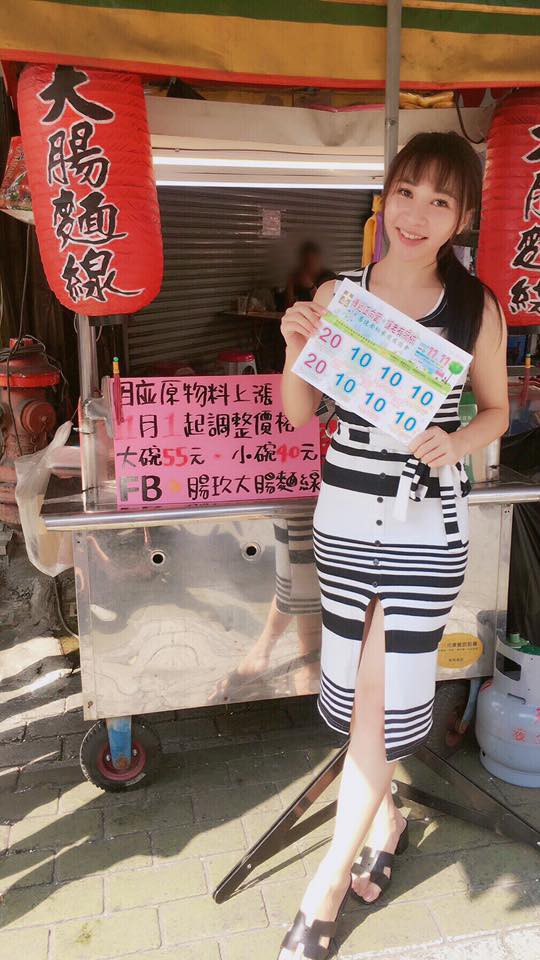 大腸麵線
大腸麵線
11.11
20 10 10 10
20 10 10 10
月座原物料上漲
11月1起調整價格
大碗55元・小碗40元
FB 腸玖大腸麵線